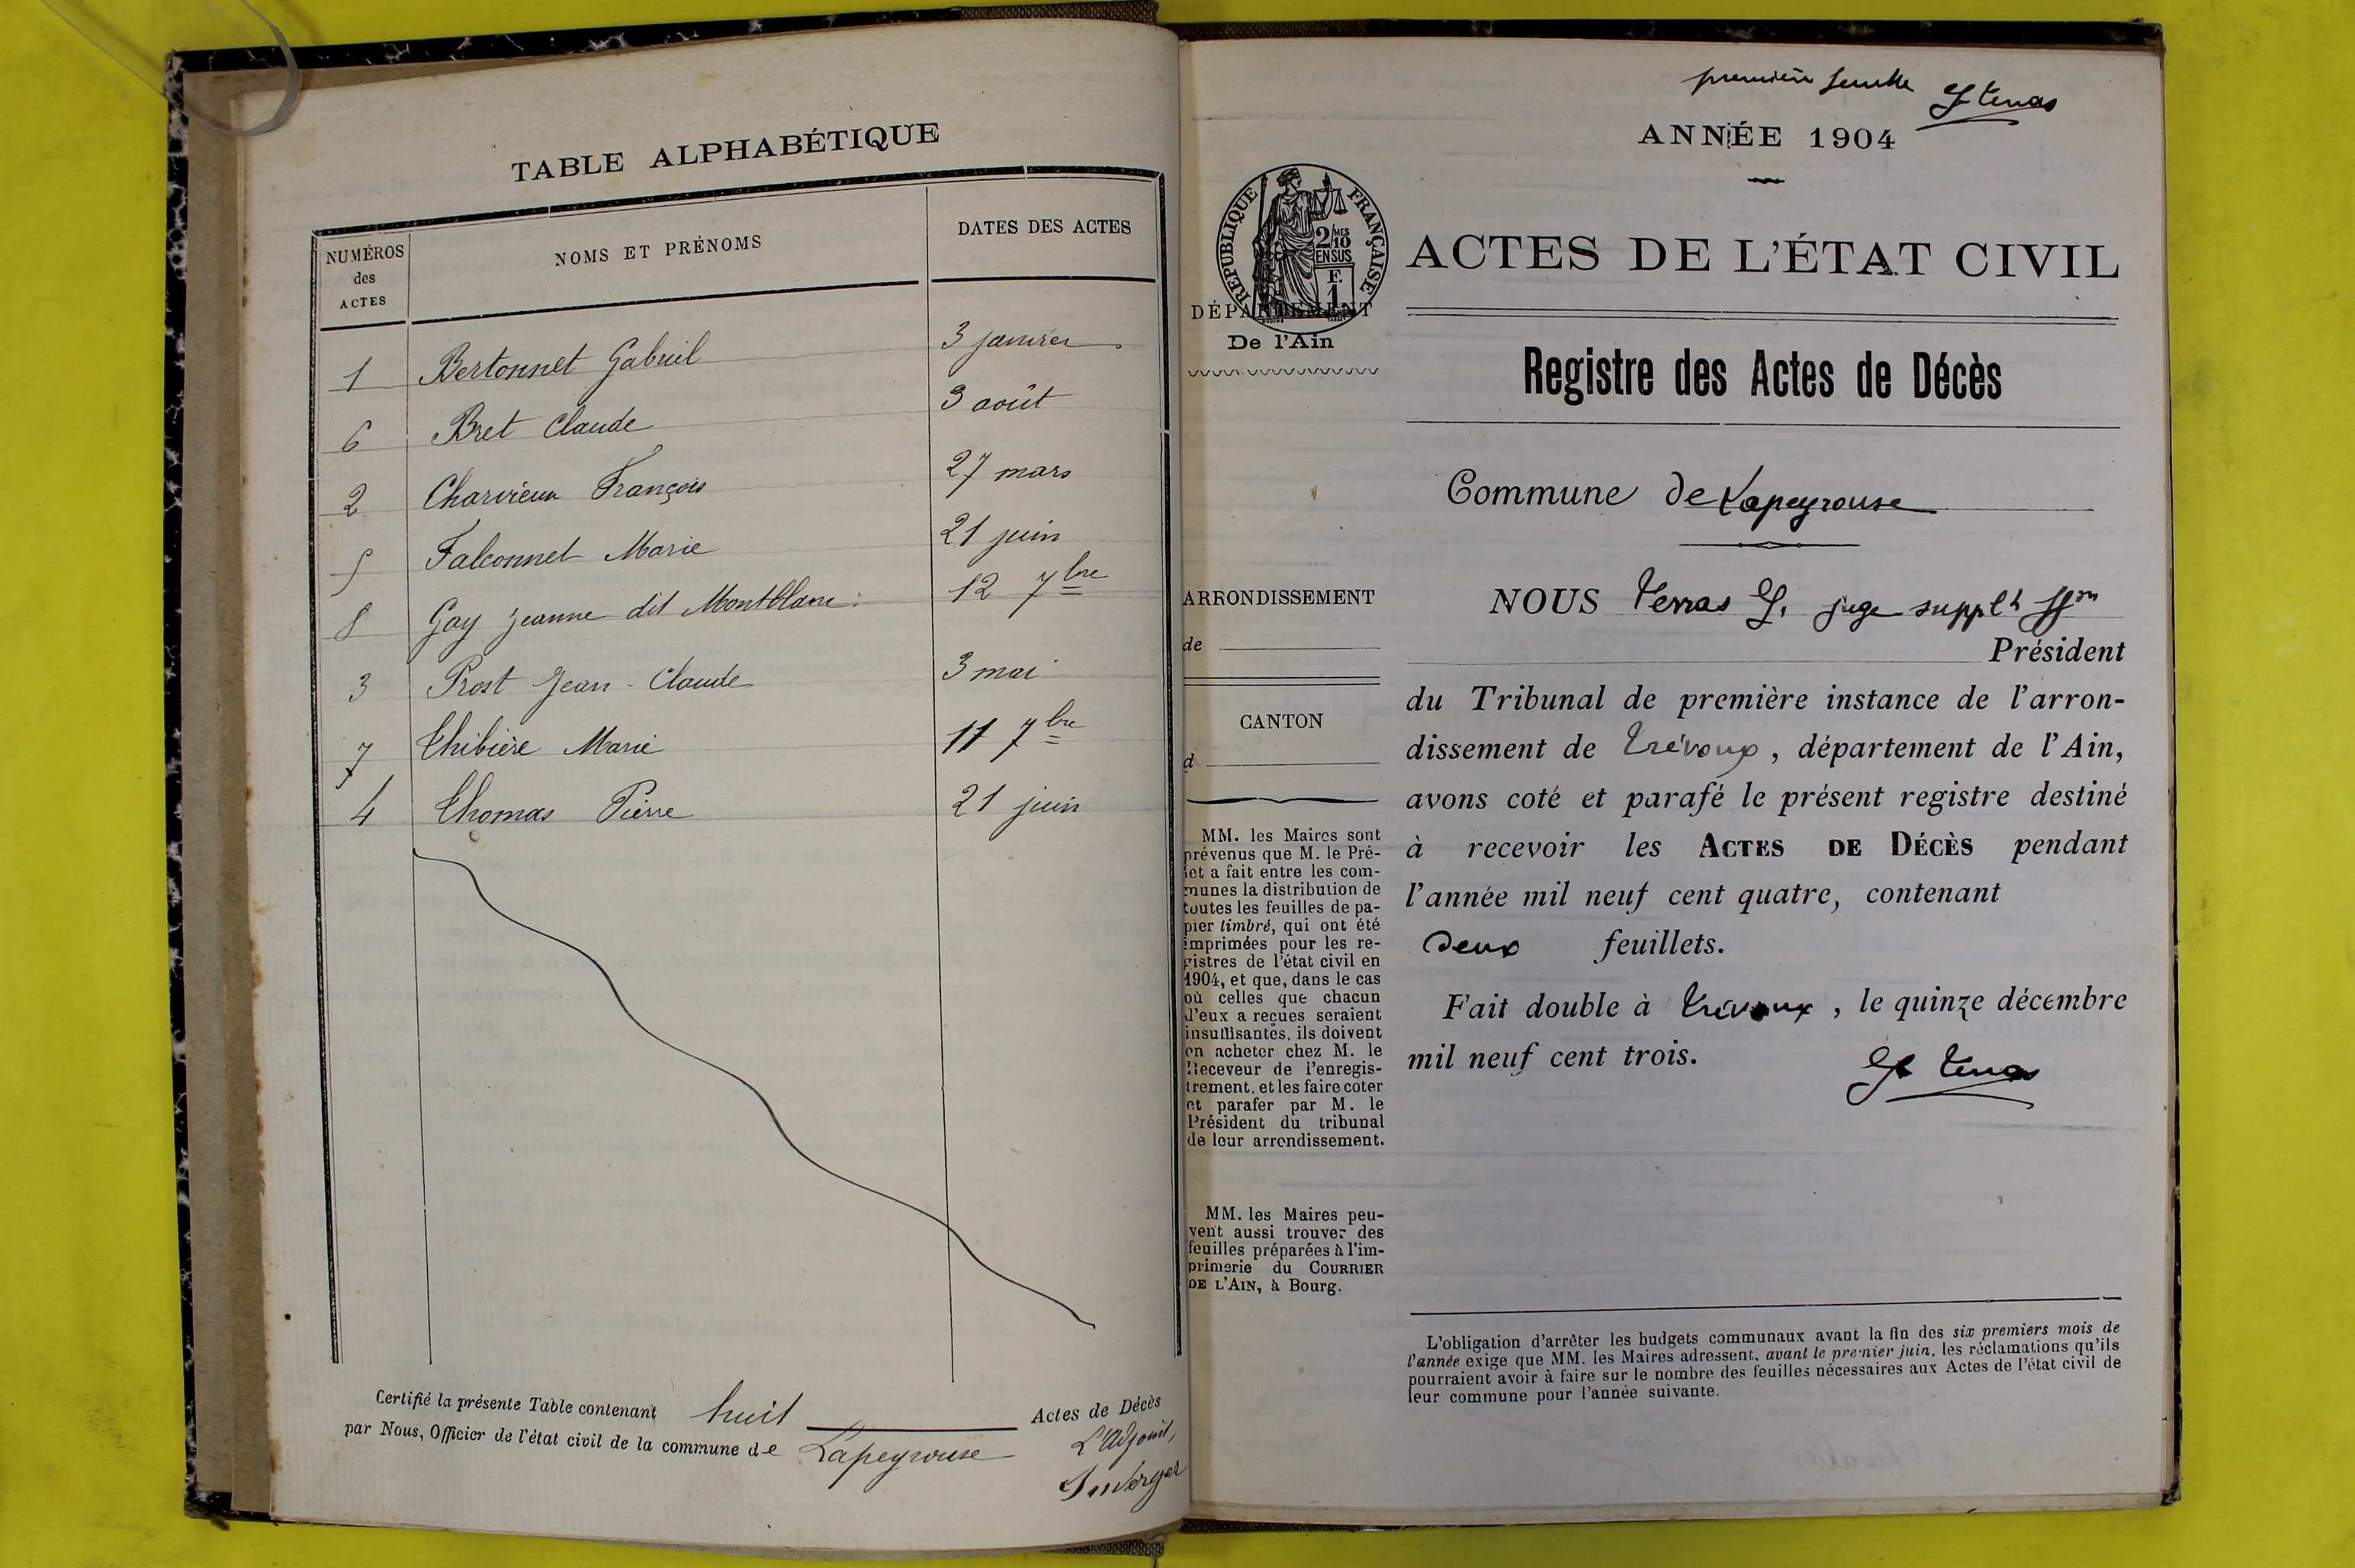 TABLE ALPHABÉTIQUE
NUMÉROS des ACTES NOMS ET PRÉNOMS DATES DES ACTES
1 Bertonnet Gabriel 3 janvier
6 Bret Claude 3 août
2 Charvieux François 27 mars
5 Falconnet Marie 21 juin
8 Gay Jeanne dit Montblanc 12 7bre
3 Prost Jean-Claude 3 mai
7 Thibière Marie 11 7bre
4 Thomas Pierre 21 juin
Certifié la présente Table contenant huit Actes de Décès
par Nous, Officier de l'état civil de la commune de Lapeyrouse
L'Adjoint,
première feuille
ANNÉE 1904
RÉPUBLIQUE FRANÇAISE
2/10 MES
EN SUS
F.
1
DÉPARTEMENT
De l'Ain
ARRONDISSEMENT
de
CANTON
d
MM. les Maires sont
prévenus que M. le Pré-
fet a fait entre les com-
munes la distribution de
toutes les feuilles de pa-
pier timbré, qui ont été
imprimées pour les re-
gistres de l'état civil en
1904, et que, dans le cas
où celles que chacun
d'eux a reçues seraient
insuffisantes, ils doivent
en acheter chez M. le
Receveur de l'enregis-
trement, et les faire coter
et parafer par M. le
Président du tribunal
de leur arrondissement.
MM. les Maires peu-
vent aussi trouver des
feuilles préparées à l'im-
primerie du COURRIER
DE L'AIN, à Bourg.
ACTES DE L'ÉTAT CIVIL
Registre des Actes de Décès
Commune de Lapeyrouse
NOUS juge suppl
Président
du Tribunal de première instance de l'arron-
dissement de Trévoux, département de l'Ain,
avons coté et parafé le présent registre destiné
à recevoir les ACTES DE DÉCÈS pendant
l'année mil neuf cent quatre, contenant
deux feuillets.
Fait double à Trévoux, le quinze décembre
mil neuf cent trois.
L'obligation d'arrêter les budgets communaux avant la fin des six premiers mois de
l'année exige que MM. les Maires adressent, avant le premier juin, les réclamations qu'ils
pourraient avoir à faire sur le nombre des feuilles nécessaires aux Actes de l'état civil de
leur commune pour l'année suivante.